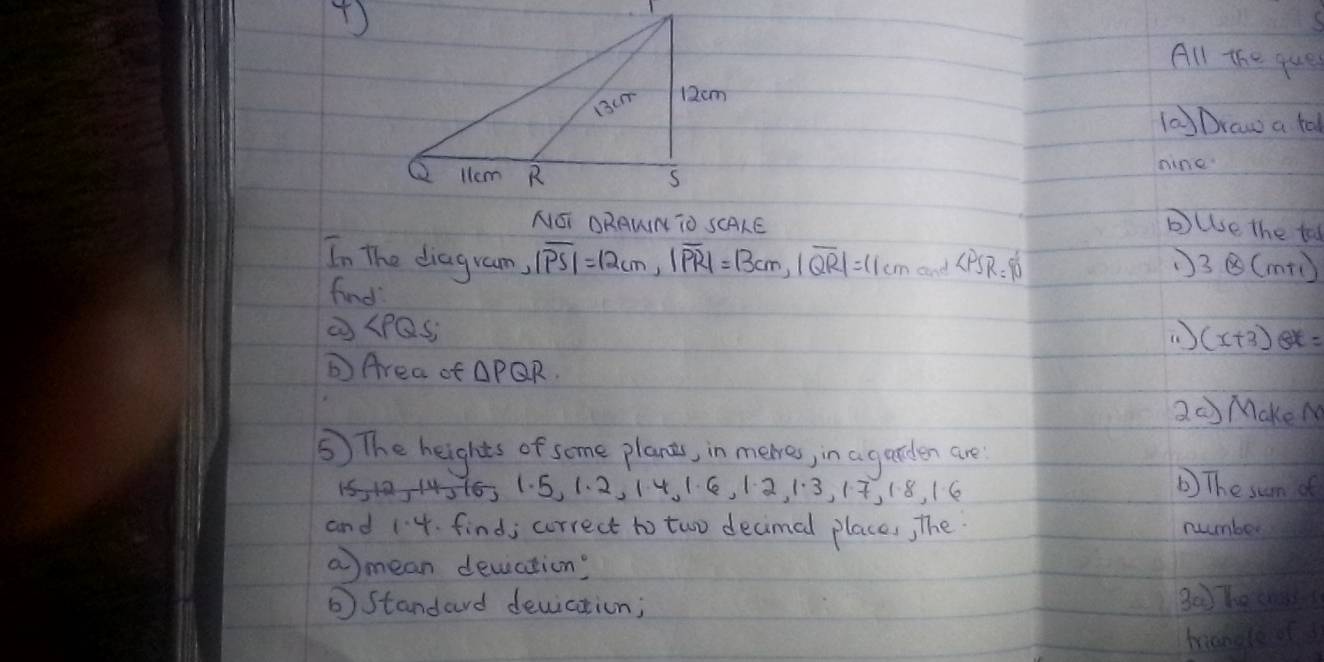 4)
P
13cm
12cm
Q 11cm R S
NOT DRAWN TO SCALE
In The diagram, |PS| = 12cm, |PR| = 13cm, |QR| = 11cm and <PSR = 90
find:
a) <PQS;
b) Area of ΔPQR.
5) The heights of some plants, in metres, in a garden are:
15, 12, 14, 16, 1.5, 1.2, 1.4, 1.6, 1.2, 1.3, 1.7, 1.8, 1.6
and 1.4. find; correct to two decimal places, The:
a) mean deviation;
b) Standard deviation;
All the ques
1a) Draw a tab
nine.
b) Use the tab
i) 3 ⊗ (m+1)
ii) (x+3) =
2a) Make M
b) The sum of
number
3a) The
triangle of